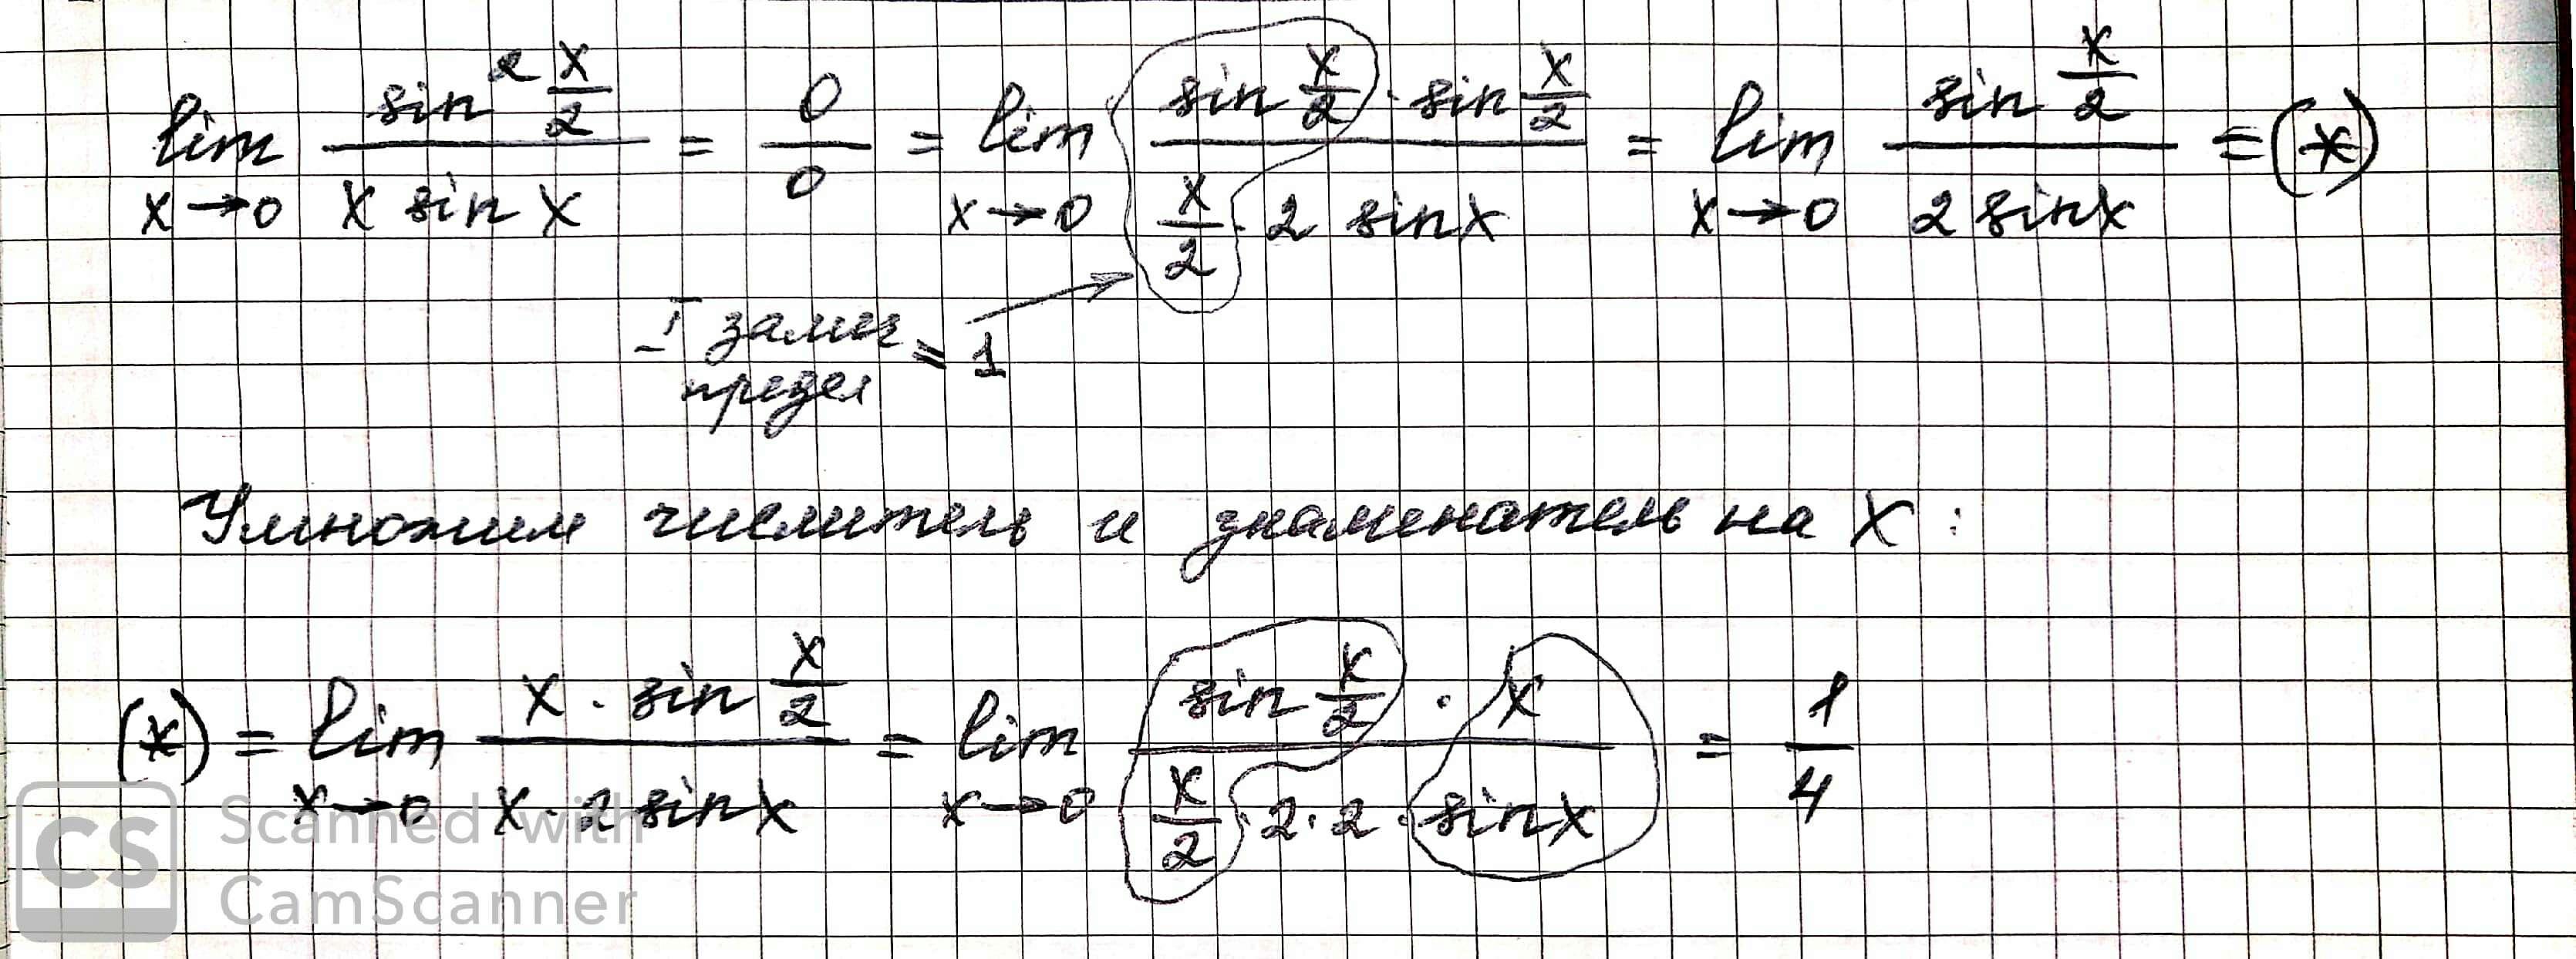 lim x→0 sin² x/2 / x sin x = 0/0 = lim x→0 sin x/2 · sin x/2 / x/2 · 2 sin x = lim x→0 sin x/2 / 2 sin x = (*)
I замеч предел = 1
Умножим числитель и знаменатель на x:
(*) = lim x→0 x · sin x/2 / x · 2 sin x = lim x→0 sin x/2 · x / x/2 · 2 · 2 · sin x = 1/4
CS Scanned with
CamScanner